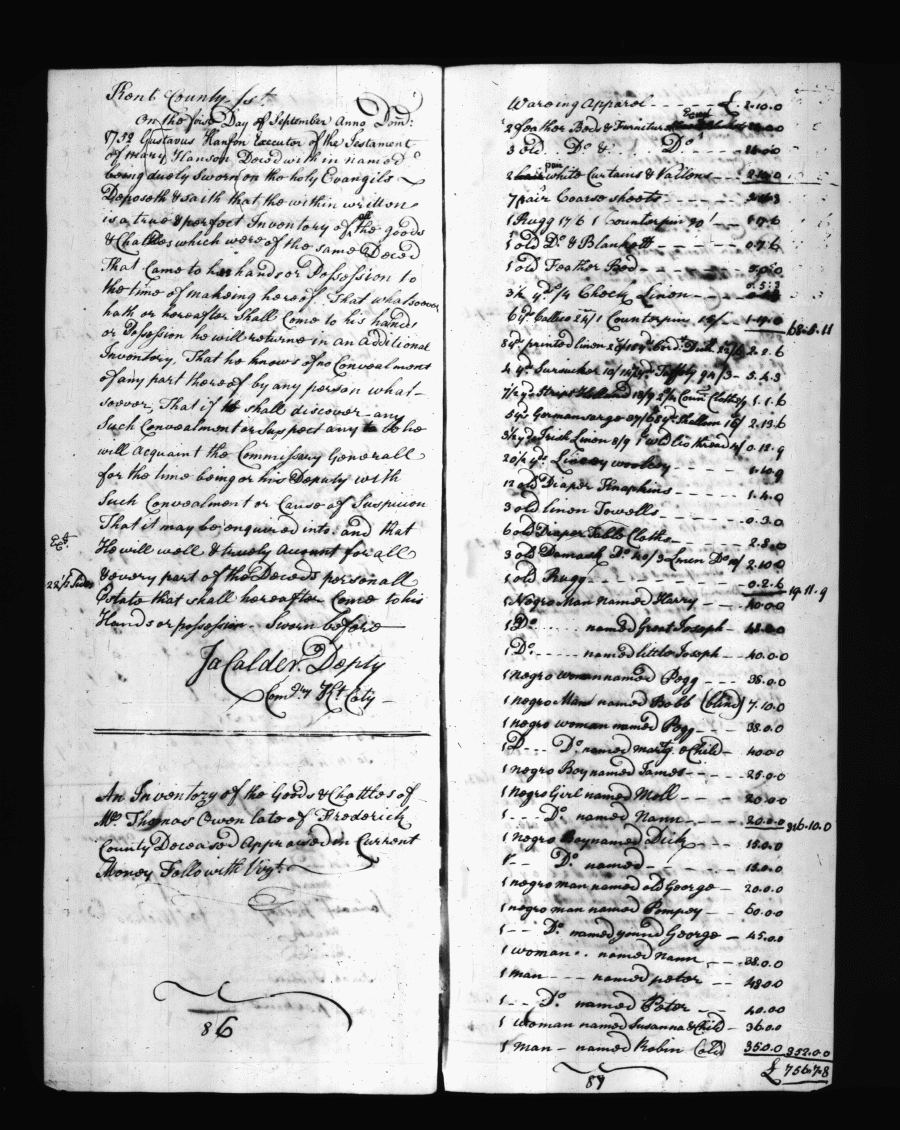 Kent County Sst.
On the first Day of September Anno Dom:
1752 Gustavus Hanson Executor of the Testament
of Mary Hanson Deced within named
being duely Sworn on the holy Evangils
Deposeth & saith that the within written
is a true & perfect Inventory of all the goods
& Chattles which were of the same Deced
That Came to his hands or Possession to
the time of makeing hereof. That whatsoever
hath or hereafter Shall Come to his hands
or Possession he will returne in an additional
Inventory, That he knows of no Concealment
of any part thereof by any person what-
soever, That if he shall discover any
Such Concealment or Suspect any to be he
will acquaint the Commissary Generall
for the time being or his Deputy with
Such Concealment or Cause of Suspicion
That it may be enquired into: and that
He will well & truely Account for all
& every part of the Deceds personall
Estate that shall hereafter Come to his
Hands or possession. Sworn before
Ja Calder Depty
Comry Kt. Coty
An Inventory of the Goods & Chattles of
Mr. Thomas Owen late of Frederick
County Deceased Appraised in Current
Money Followeth Vizt.
86
Wareing Apparel £ 2.10.0
2 feather Beds & Furniture
3 old Do. & Do.
2 pair white Curtains & Vallons
7 pair Coarse sheets
1 Rugg 17/6 1 Counterpin 30/ 1.7.6
1 old Do. & Blankett 0.7.6
1 old Feather Bed
3½ yds. Check Linen 0.5.3
6 yds. Callico 24/ 1 Counterpin 15/ 68.8.11
8 yds. printed linen 2.2.6
4 yds. Sursucker 5.4.3
Stript Holland 18/9 1.1.6
5 yds. Germansarge 37/6 Shalloon 16/ 2.13.6
3½ yds. Irish Linen 8/9 0.12.9
20½ yds. Lincey woolsey
12 old Diaper Knapkins 1.4.0
3 old linen Towells 0.3.0
6 old Diaper Table Cloths 2.8.0
3 old Damask Do. 40/ 3 Linen Do. 10/ 2.10.0
1 old Rugg 0.2.6 19.11.9
1 Negro Man named Harry 40.0.0
1 Do. named Great Joseph 48.0.0
1 Do. named little Joseph 40.0.0
1 negro woman named Pegg 38.0.0
1 negro Man named Bobb (blind) 7.10.0
1 negro woman named Pegg 38.0.0
1 Do. Do. named marty. & Child 40.0.0
1 negro Boy named James 25.0.0
1 Negro Girl named Moll 20.0.0
1 Do. named Nann 20.0.0 316.10.0
1 negro Boy named Dick 15.0.0
1 Do. named 15.0.0
1 negro man named old George 20.0.0
1 negro man named Pompey 50.0.0
1 Do. named yound George 45.0.0
1 woman named nann 38.0.0
1 man named peter 48.0.0
1 Do. named Peter 40.0.0
1 woman named Susanna & Child 36.0.0
1 man named Robin (old) 35.0.0 352.0.0
£ 756.7.8
87